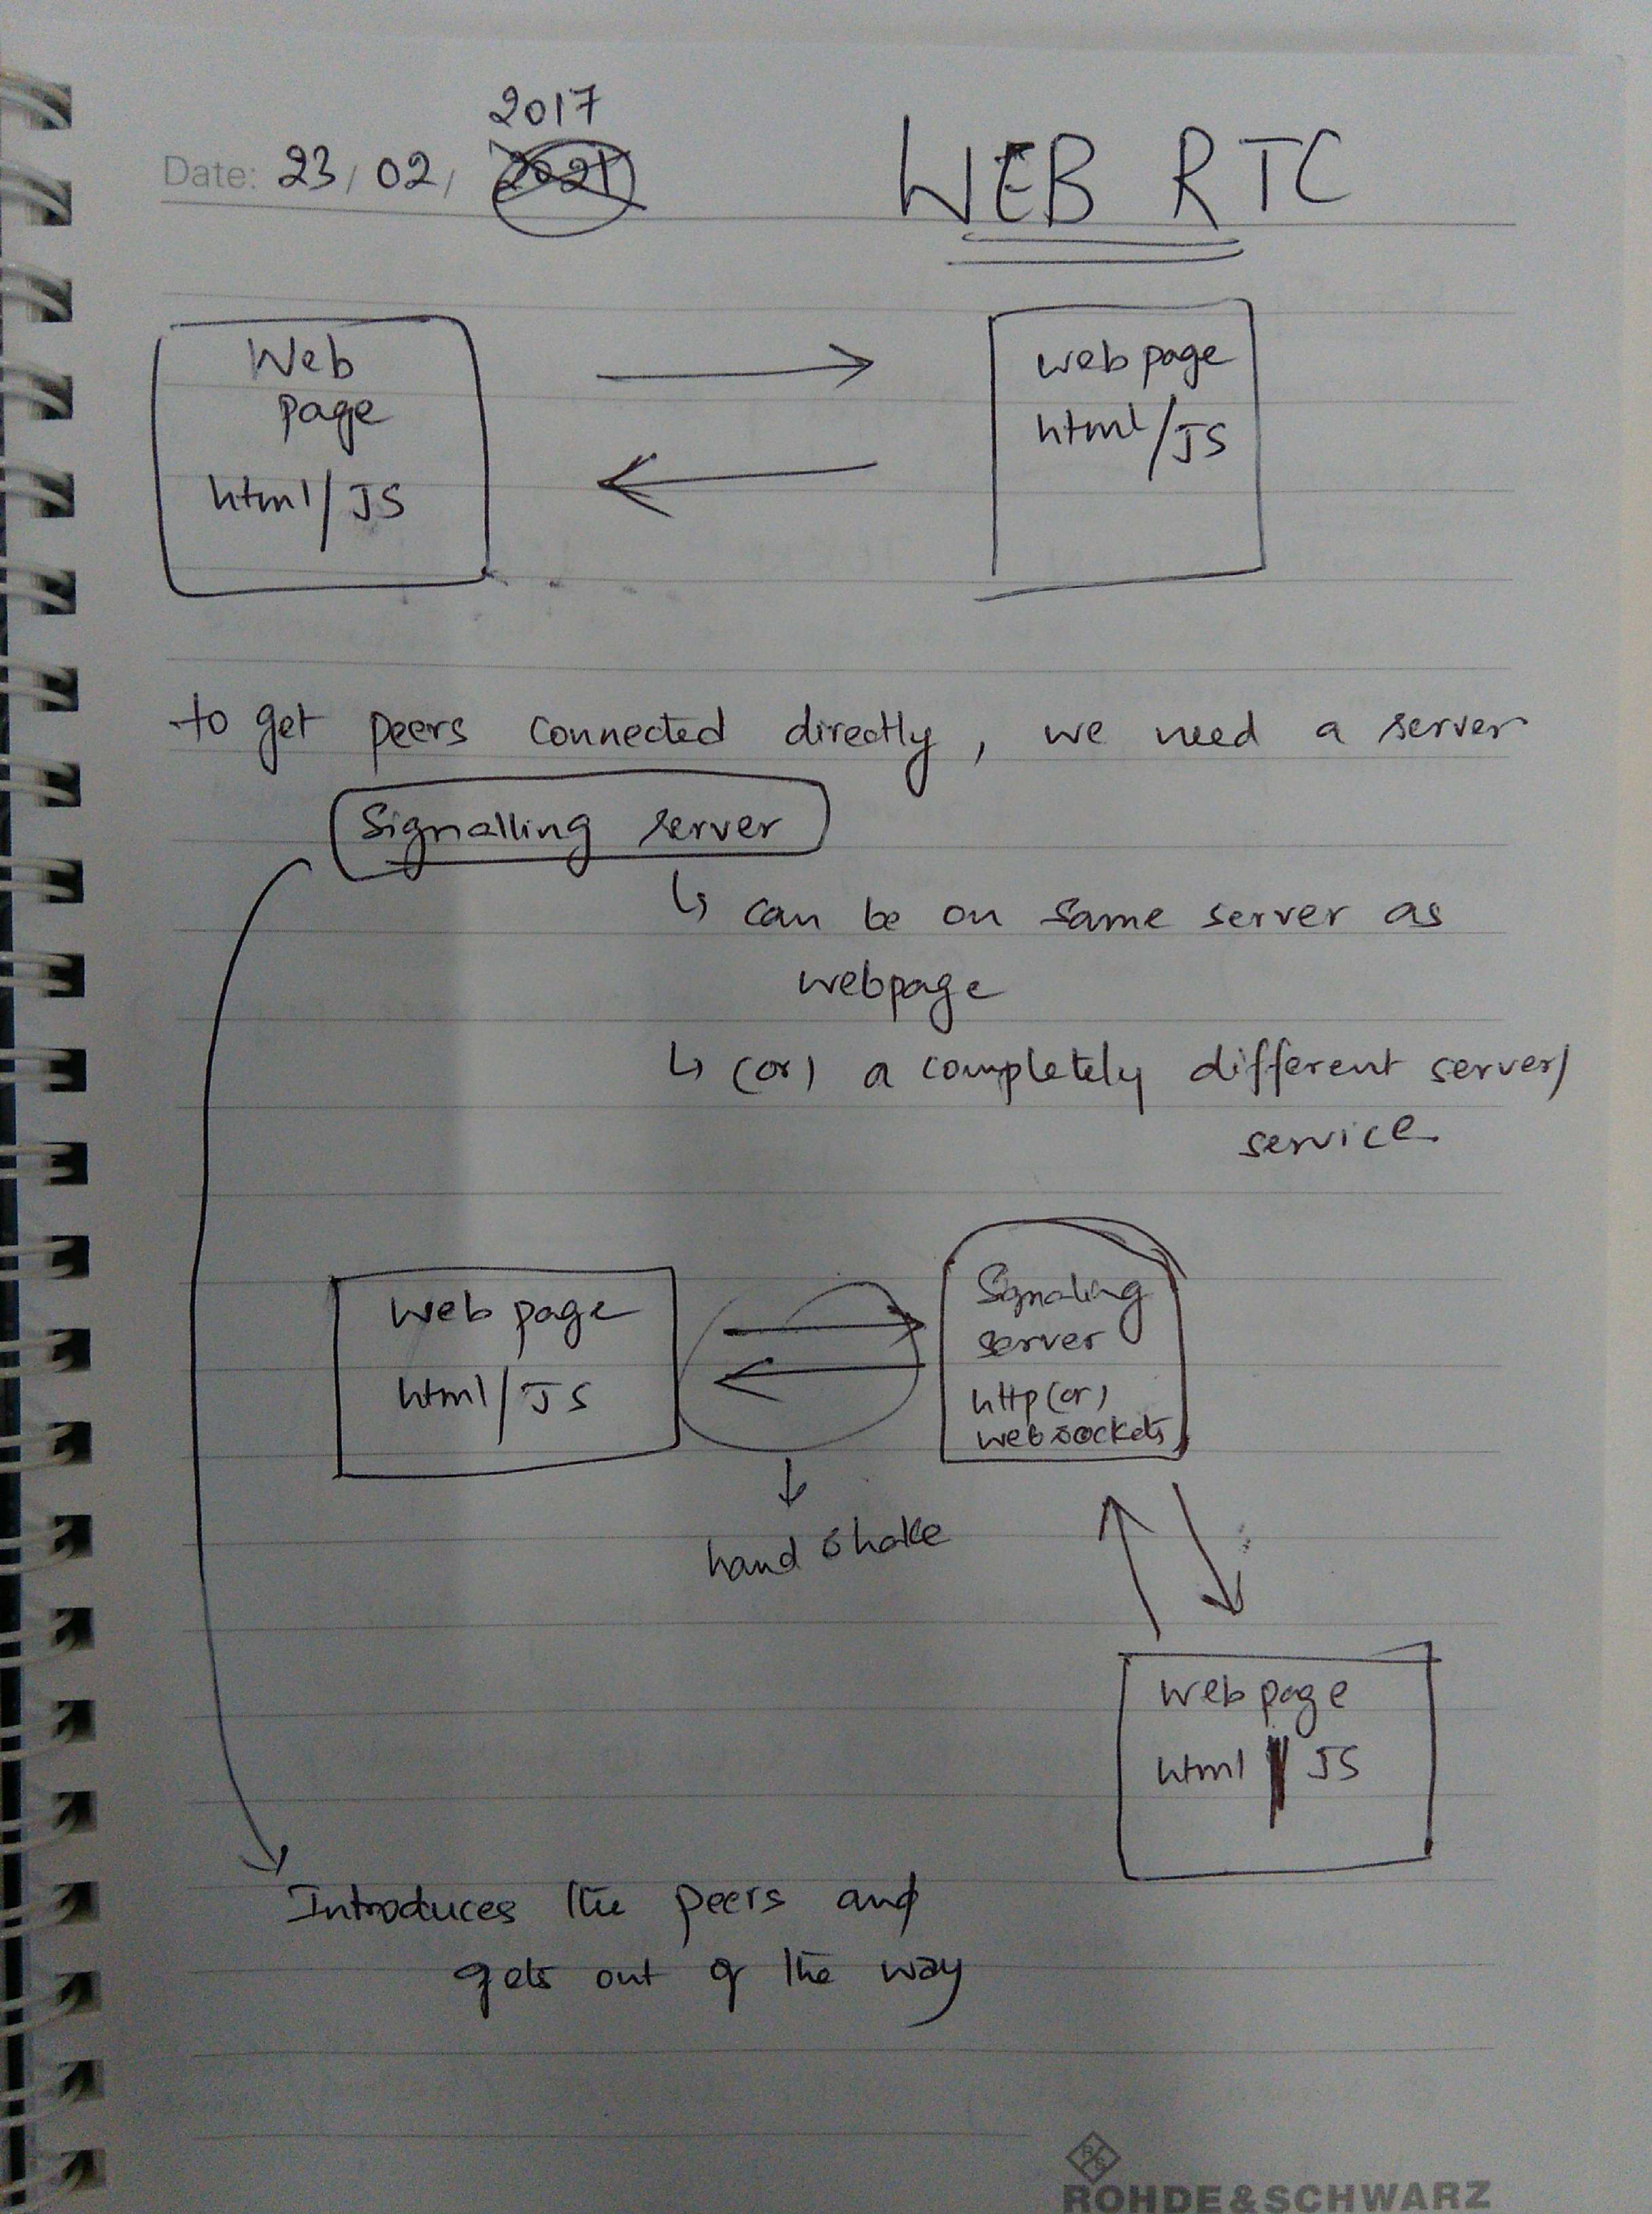 2017
Date: 23/02/ 2021
WEB RTC
Web
page
html/JS
webpage
html/JS
to get peers connected directly, we need a server
Signalling server
↳ can be on same server as
webpage
↳ (or) a completely different server/
service
web page
html/JS
Signaling
server
http(or)
websockets
hand shake
web page
html/JS
Introduces the peers and
gets out of the way
R&S
ROHDE&SCHWARZ